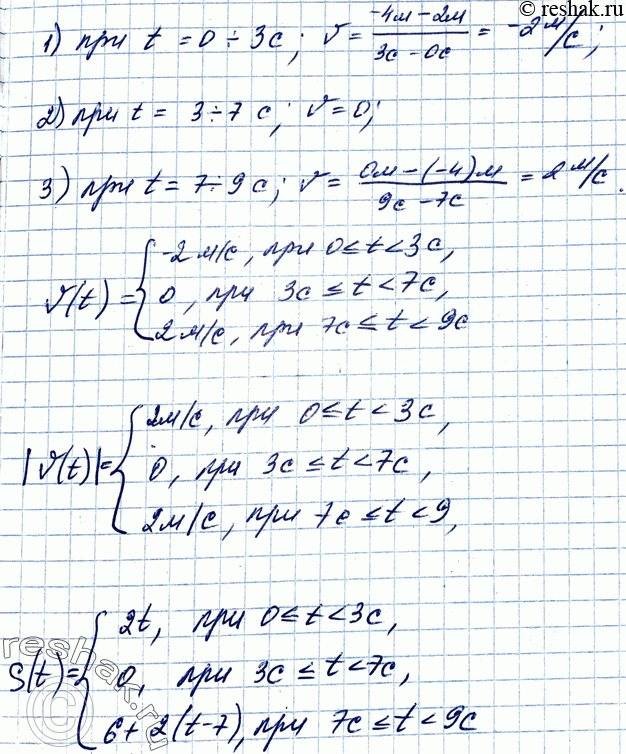 © reshak.ru
1) при t = 0 ÷ 3с; v = (-4м - 2м)/(3с - 0с) = -2 м/с;
2) при t = 3 ÷ 7 с; v = 0;
3) при t = 7 ÷ 9 с; v = (0м - (-4)м)/(9с - 7с) = 2 м/с.
v(t) = { -2 м/с, при 0 ≤ t < 3с,
0, при 3с ≤ t < 7с,
2 м/с, при 7с ≤ t < 9с
|v(t)| = { 2м/с, при 0 ≤ t < 3с,
0, при 3с ≤ t < 7с,
2м/с, при 7с ≤ t < 9,
S(t) = { 2t, при 0 ≤ t < 3с,
0, при 3с ≤ t < 7с,
6 + 2(t - 7), при 7с ≤ t < 9с
reshak.ru